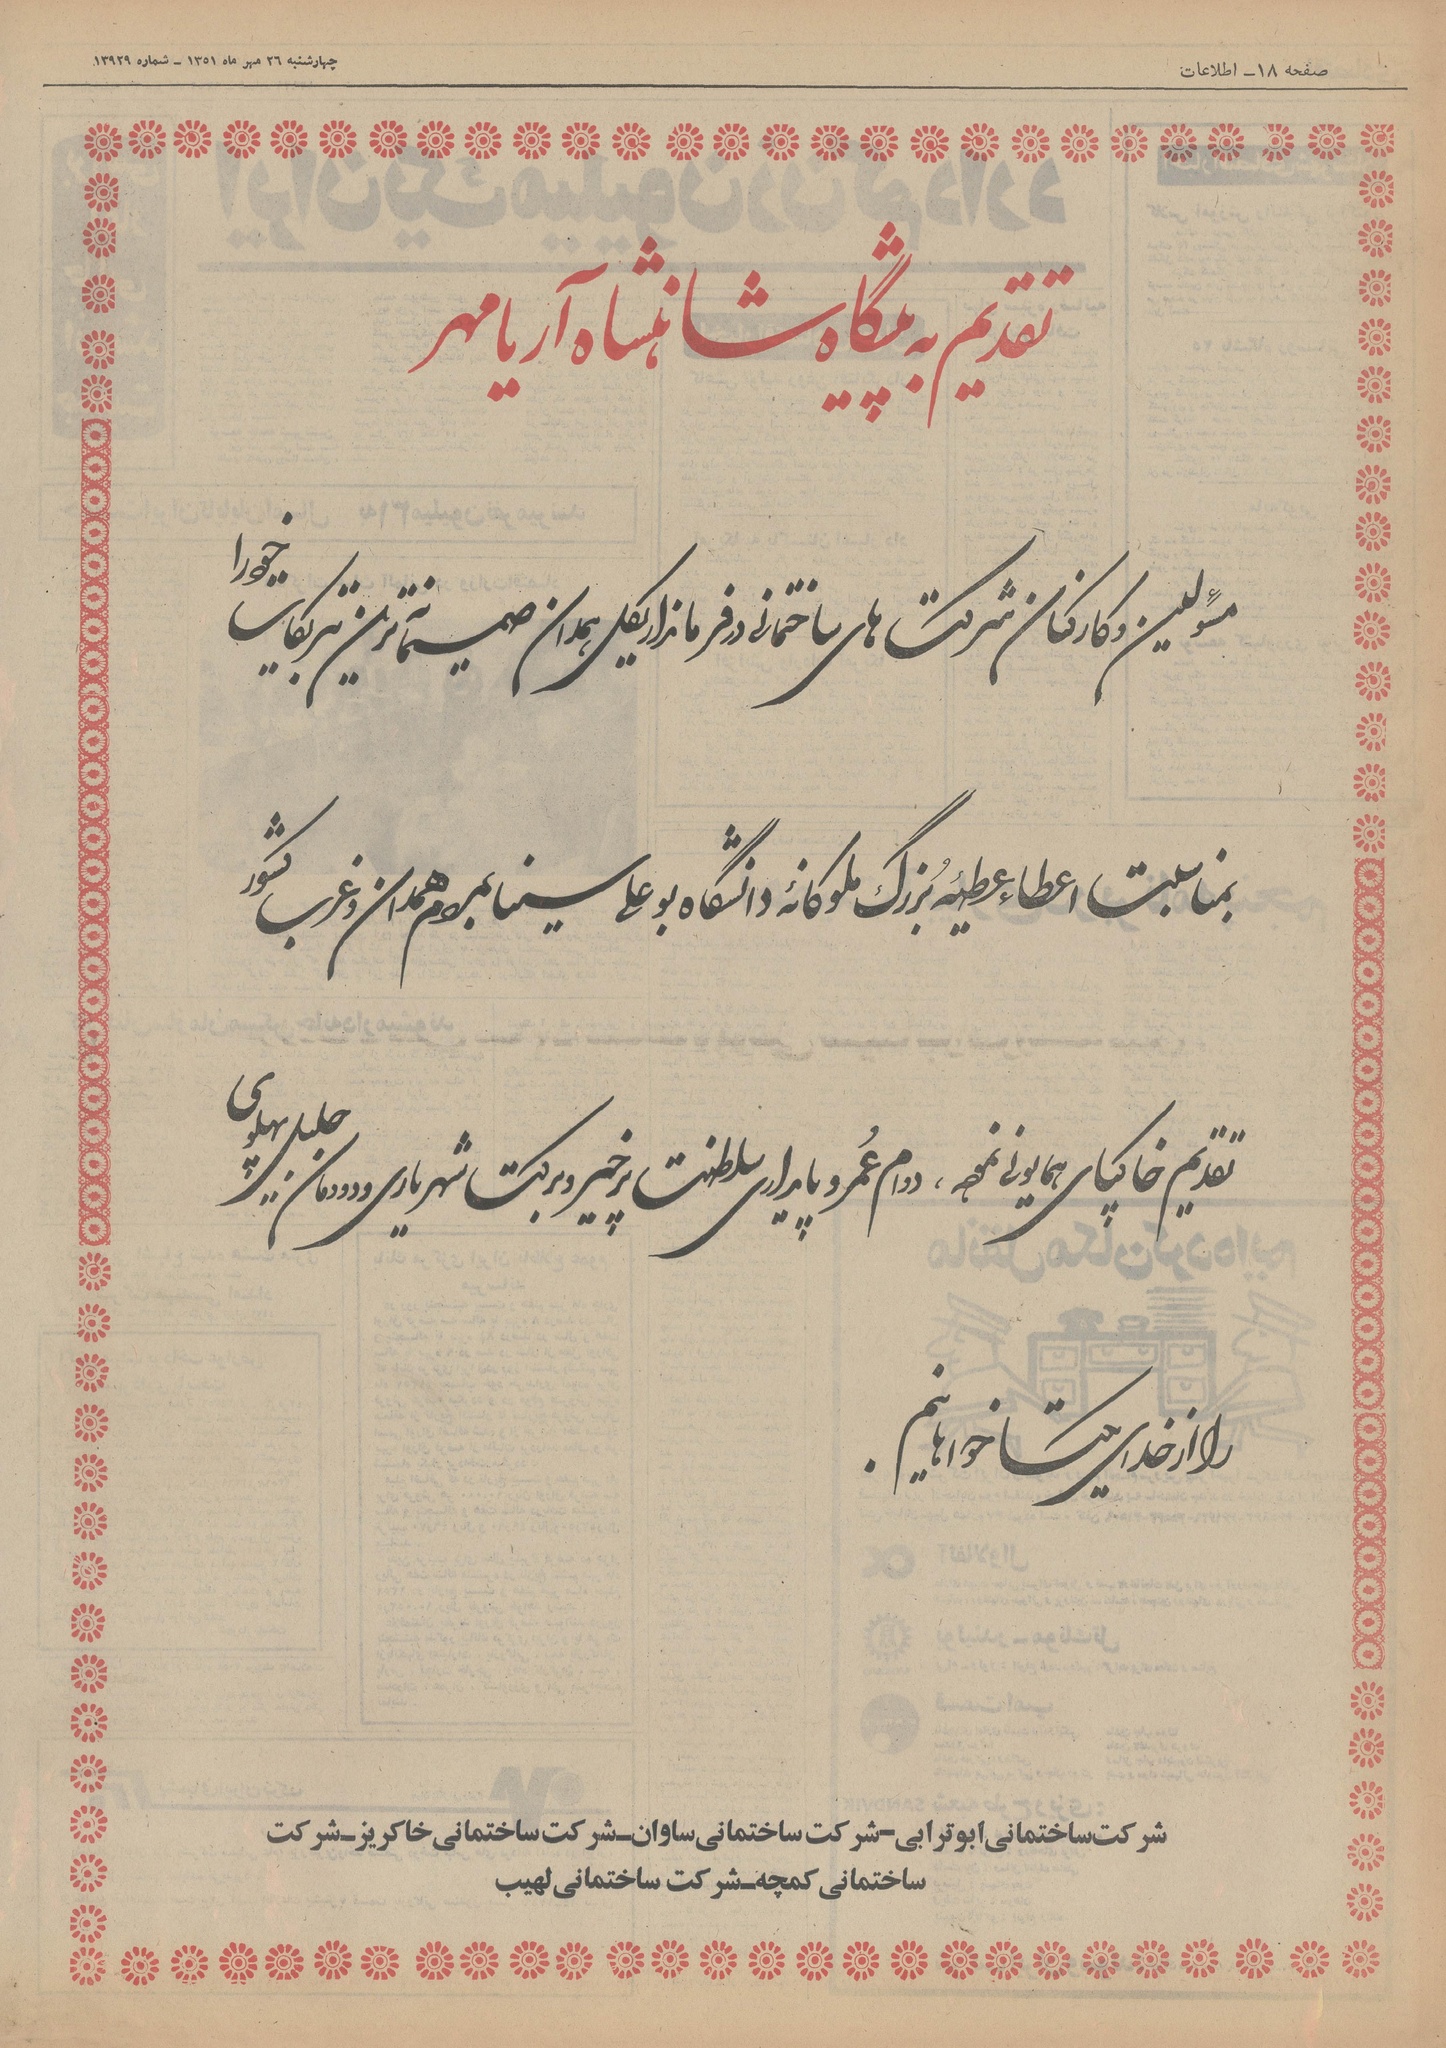 صفحه ۱۸ـ اطلاعات
چهارشنبه ۲۶ مهر ماه ۱۳۵۱ ـ شماره ۱۳۹۲۹
تقدیم به پیشگاه شاهنشاه آریامهر
مسئولین و کارکنان شرکت های ساختمانی در فرمانداریکل همدان صمیمانه‌ترین تبریکات خود را
بمناسبت اعطاء عطیهٔ بزرگ ملوکانه دانشگاه بوعلی سینا بمردم همدان و غرب کشور
تقدیم خاکپای همایونی نموده ، دوام عُمر و پایداری سلطنت پرخیر و برکت شهریاری و دودمان جلیل پهلوی
را از خدای یکتا خواهانیم .
شرکت ساختمانی ابوترابی–شرکت ساختمانی ساوان–شرکت ساختمانی خاکریز–شرکت
ساختمانی کمچه–شرکت ساختمانی لهیب